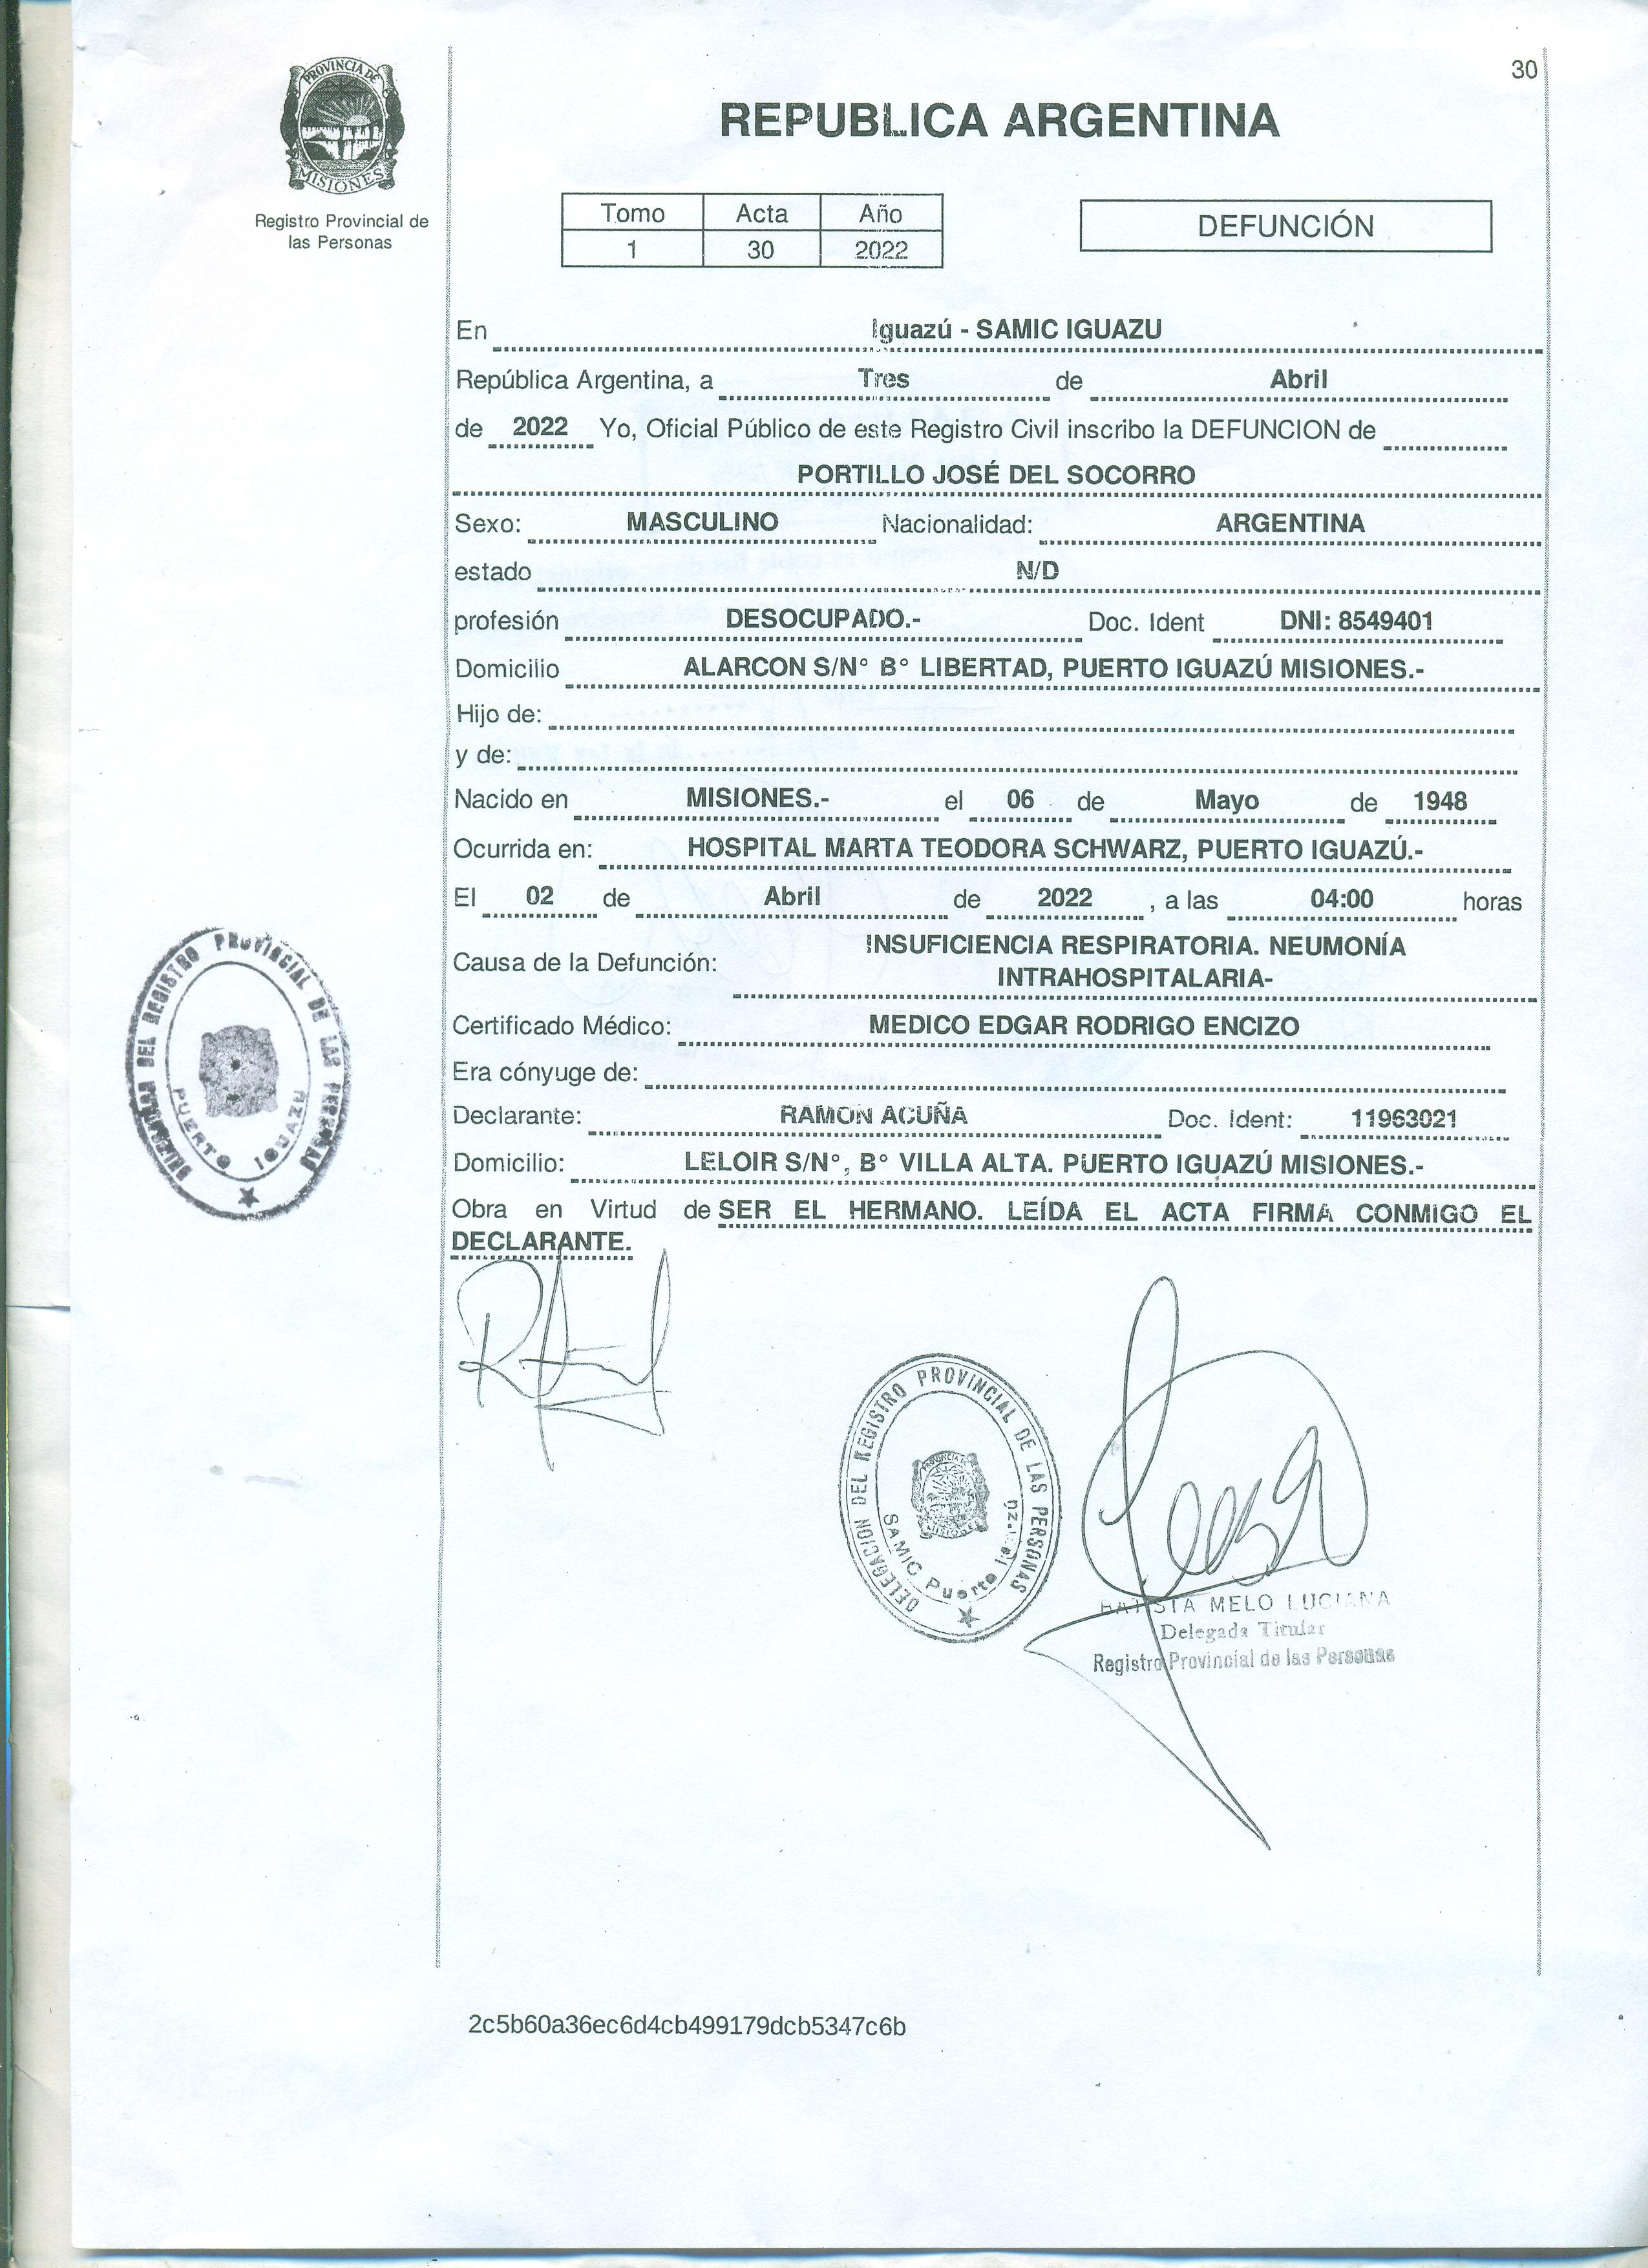 30
PROVINCIA DE
MISIONES
Registro Provincial de
las Personas
REPUBLICA ARGENTINA
Tomo Acta Año
1 30 2022
DEFUNCIÓN
En Iguazú - SAMIC IGUAZU
República Argentina, a Tres de Abril
de 2022 Yo, Oficial Público de este Registro Civil inscribo la DEFUNCION de
PORTILLO JOSÉ DEL SOCORRO
Sexo: MASCULINO Nacionalidad: ARGENTINA
estado N/D
profesión DESOCUPADO.- Doc. Ident DNI: 8549401
Domicilio ALARCON S/N° B° LIBERTAD, PUERTO IGUAZÚ MISIONES.-
Hijo de:
y de:
Nacido en MISIONES.- el 06 de Mayo de 1948
Ocurrida en: HOSPITAL MARTA TEODORA SCHWARZ, PUERTO IGUAZÚ.-
El 02 de Abril de 2022 , a las 04:00 horas
Causa de la Defunción: INSUFICIENCIA RESPIRATORIA. NEUMONÍA
INTRAHOSPITALARIA-
Certificado Médico: MEDICO EDGAR RODRIGO ENCIZO
Era cónyuge de:
Declarante: RAMON ACUÑA Doc. Ident: 11963021
Domicilio: LELOIR S/N°, B° VILLA ALTA. PUERTO IGUAZÚ MISIONES.-
Obra en Virtud de SER EL HERMANO. LEÍDA EL ACTA FIRMA CONMIGO EL
DECLARANTE.
DEL REGISTRO PROVINCIAL DE LAS PERSONAS
PUERTO IGUAZU
DELEGACION DEL REGISTRO PROVINCIAL DE LAS PERSONAS
SAMIC Puerto
BATISTA MELO LUCIANA
Delegada Titular
Registro Provincial de las Personas
2c5b60a36ec6d4cb499179dcb5347c6b